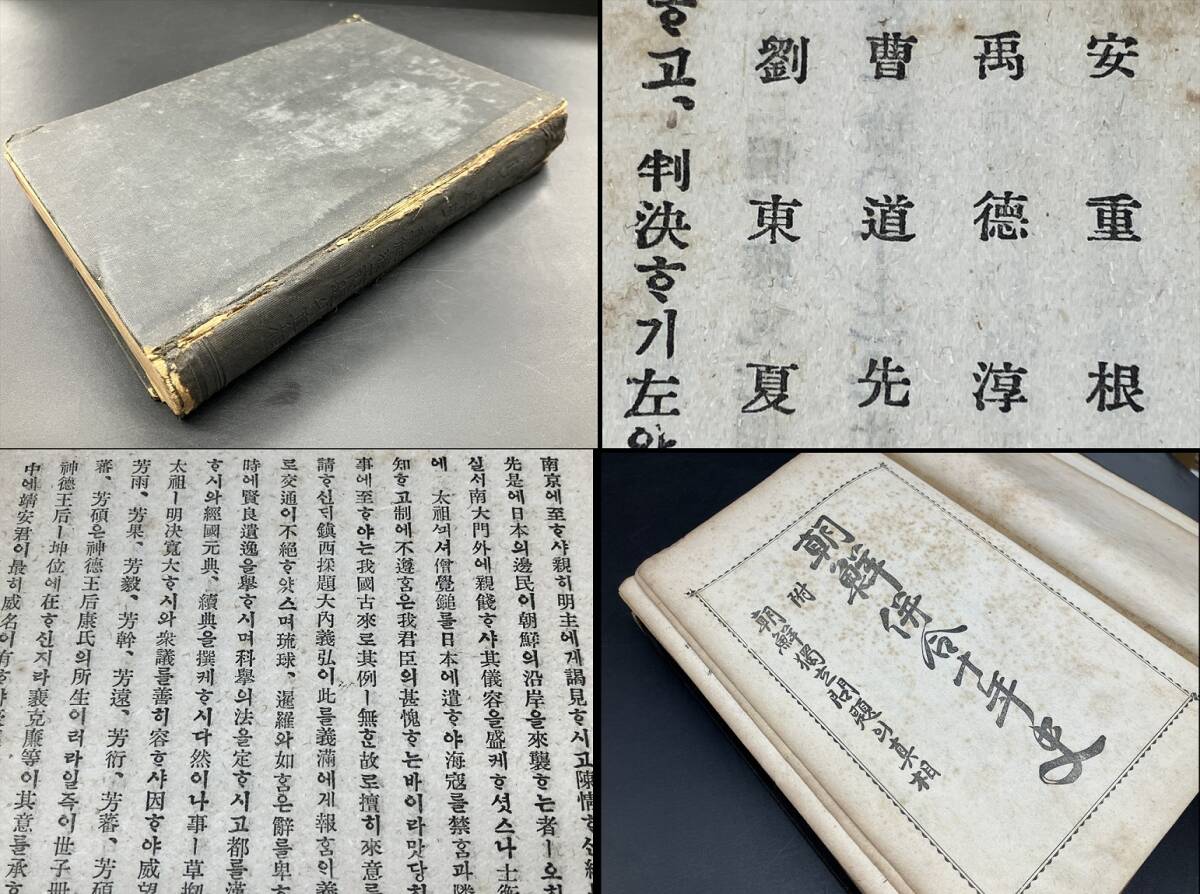 安重根
禹德淳
曹道先
劉東夏
ᄒᆞ고、判決ᄒᆞ기左와
南京에至ᄒᆞ샤親히明主에게謁見ᄒᆞ시고陳情ᄒᆞ신
先是에日本의邊民이朝鮮의沿岸을來襲ᄒᆞ는者ㅣ오
실서南大門外에親餞ᄒᆞ샤其儀容을盛케ᄒᆞ셧스나士衡
에 太祖ᄭᅴ셔僧覺鎚를日本에遣ᄒᆞ야海寇를禁홈과隣
知ᄒᆞ고制에不遵홈은我君臣의甚愧ᄒᆞ는바이라맛당히
事에至ᄒᆞ야는我國古來로其例ㅣ無ᄒᆞᆫ故로擅히來意를
請ᄒᆞ신ᄃᆡ鎭西探題大內義弘이此를義滿에게報홈의義
로交通이不絕ᄒᆞ얏스며琉球、暹羅와如홈은辭를卑ᄒᆞ
時에賢良遺逸을擧ᄒᆞ시며科擧의法을定ᄒᆞ시고都를漢
ᄒᆞ시와經國元典、續典을撰케ᄒᆞ시다然이나事ㅣ草刱
太祖ㅣ明决寬大ᄒᆞ시와衆議를善히容ᄒᆞ샤因ᄒᆞ야威望
芳雨、芳果、芳毅、芳幹、芳遠、芳衍、芳蕃、芳碩
蕃、芳碩은神德王后康氏의所生이러라일즉이世子冊
神德王后ㅣ坤位에在ᄒᆞ신지라裵克廉等이其意를承
中에靖安君이最히威名이有ᄒᆞ야
朝鮮併合十年史
附 朝鮮獨立問題의真相